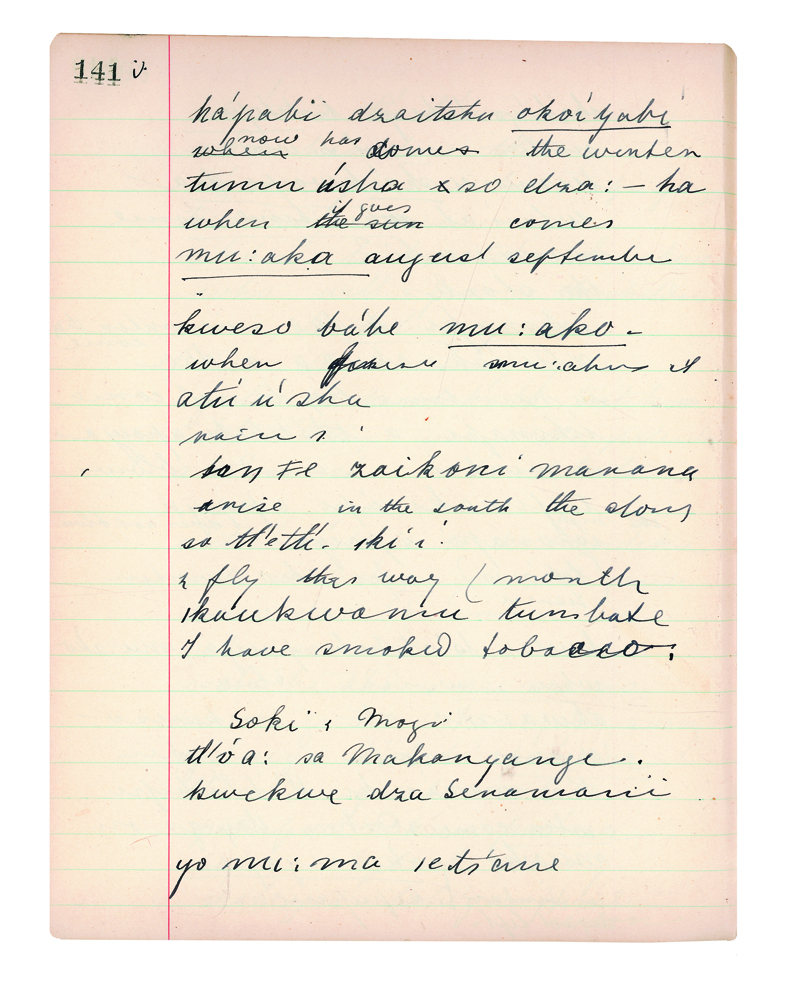 141 v.
há'pabiï dzaitshu okoi'yabi
now has
when comes the winter
tumu úsha so dza: – ha
it goes
when the sun comes
mu:aka august september
kweso bábe mu:ako –
when mu:ahus it
atú ú'sha
rain
san Fe zaikoni manana
arise in the south the
so tl'etl'i. iki'i
& fly this way ( month
ikaukwamu tumbate
I have smoked tobacco:
Soki & Mogi
tl'óa: sa Makanyange.
kwekwe dza Senamarii
yo mu:ma